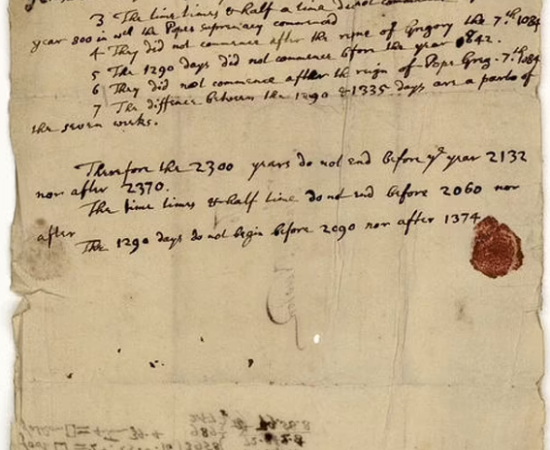 3 The time times & half a time do not
year 800 in wch the Popes supremacy commenced
4 They did not commence after the reigne of Gregory the 7th. 1084
5 The 1290 days did not commence bfore the year 842.
6 They did not commence after the reign of Pope Greg. 7th. 1084
7 The diffence between the 1290 & 1335 days are a parts of
the seven weeks.
Therfore the 2300 years do not end before ye year 2132
nor after 2370.
The time times & half time do not end before 2060 nor
after
The 1290 days do not begin before 2090 nor after 1374